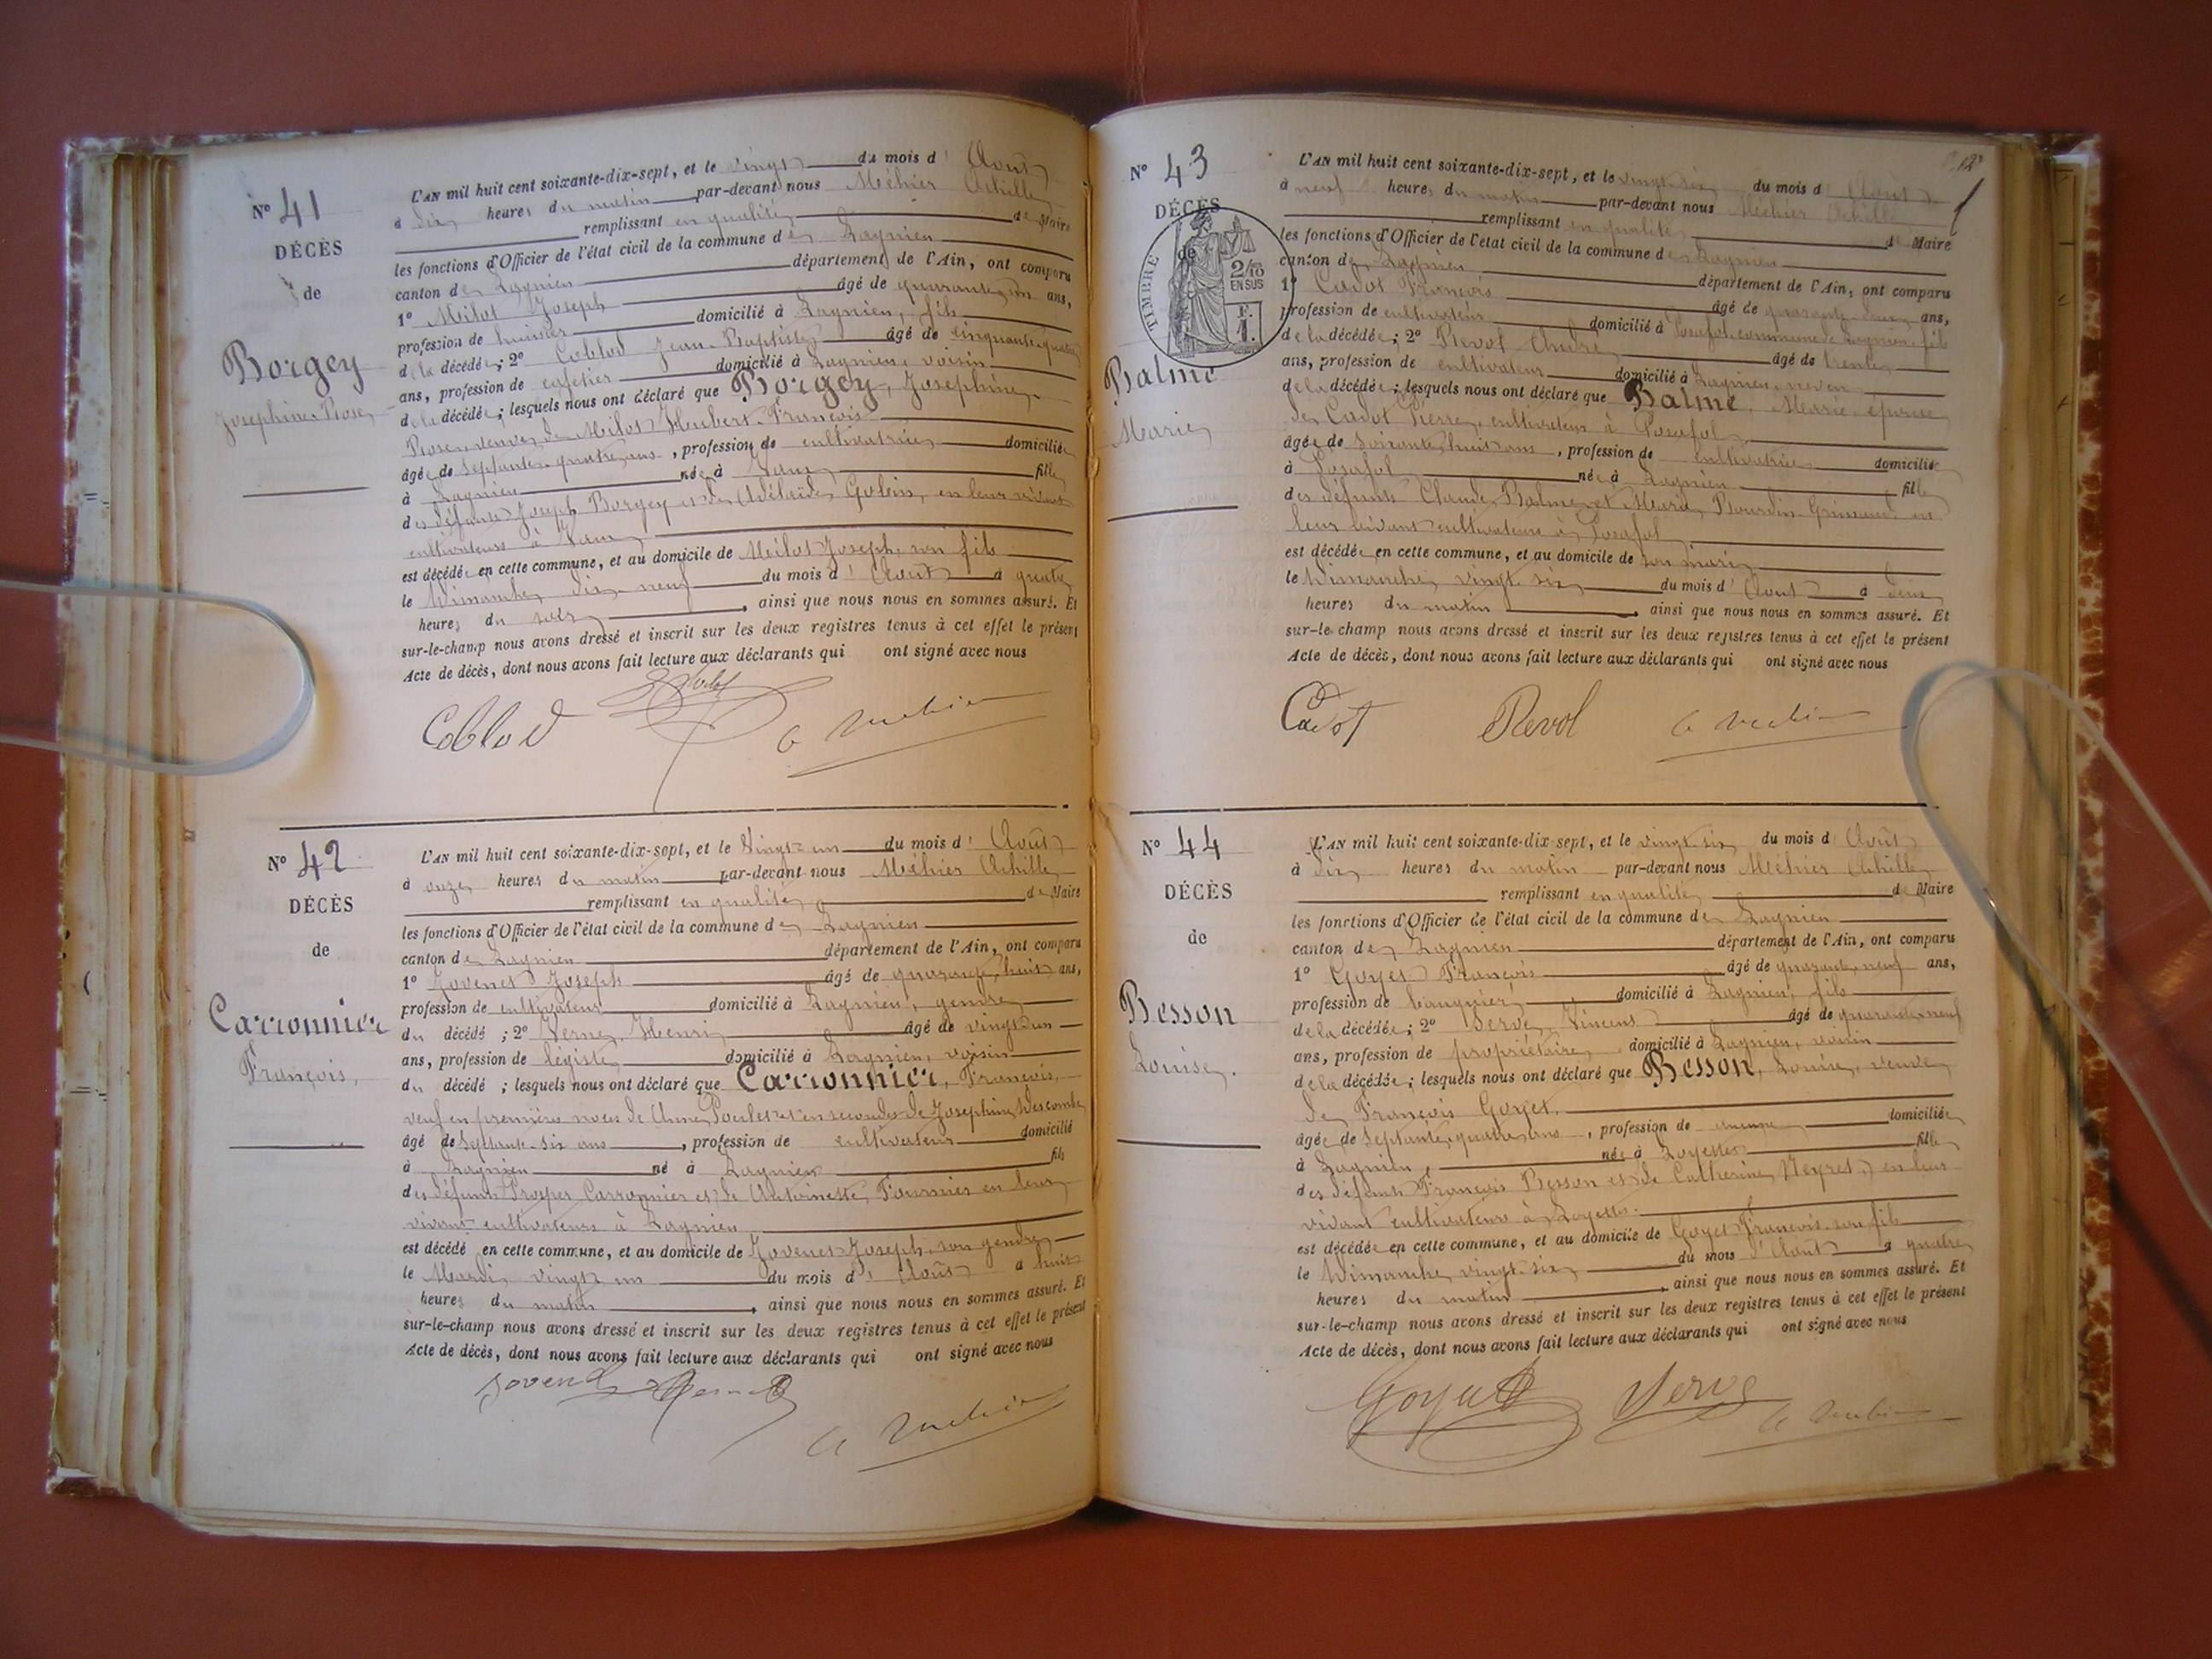 N° 41
DÉCÈS
de
Borgey
Josephine Rose
L'AN mil huit cent soixante-dix-sept, et le vingt du mois d'Août
à dix heures du matin par-devant nous Méhier Achille
remplissant en qualité de Maire
les fonctions d'Officier de l'état civil de la commune de Lagnieu
canton de Lagnieu département de l'Ain, ont comparu
1° Milot Joseph âgé de quarante ans,
profession de huissier domicilié à Lagnieu, fils
de la décédée; 2° Coblod Jean-Baptiste âgé de cinquante-quatre
ans, profession de cafetier domicilié à Lagnieu, voisin
de la décédée; lesquels nous ont déclaré que Borgey, Josephine
Rose, veuve de Milot Hubert-François
âgée de septante-quatre ans, profession de cultivatrice domiciliée
à Lagnieu née à Vaux fille
des défunts Joseph Borgey et de Adélaïde Gobin, en leur vivant
cultivateurs à Vaux
est décédée en cette commune, et au domicile de Milot Joseph, son fils
le Dimanche dix-neuf du mois d'Août à quatre
heures du soir, ainsi que nous nous en sommes assuré. Et
sur-le-champ nous avons dressé et inscrit sur les deux registres tenus à cet effet le présent
Acte de décès, dont nous avons fait lecture aux déclarants qui ont signé avec nous
Coblod
N° 42
DÉCÈS
de
Carronnier
François,
L'AN mil huit cent soixante-dix-sept, et le vingt-un du mois d'Août
à onze heures du matin par-devant nous Méhier Achille
remplissant en qualité de Maire
les fonctions d'Officier de l'état civil de la commune de Lagnieu
canton de Lagnieu département de l'Ain, ont comparu
1° Jovenet Joseph âgé de quarante-huit ans,
profession de cultivateur domicilié à Lagnieu, gendre
du décédé; 2° Verne, Henri âgé de vingt-un
ans, profession de légiste domicilié à Lagnieu, voisin
du décédé; lesquels nous ont déclaré que Carronnier, François,
veuf en premières noces de Anne Poulet et en secondes de Josephine Descombe
âgé de septante-six ans, profession de cultivateur domicilié
à Lagnieu né à Lagnieu fils
des défunts Prosper Carronnier et de Antoinette Fournier en leur
vivant cultivateurs à Lagnieu
est décédé en cette commune, et au domicile de Jovenet Joseph, son gendre
le Mardi vingt-un du mois d'Août à huit
heures du matin, ainsi que nous nous en sommes assuré. Et
sur-le-champ nous avons dressé et inscrit sur les deux registres tenus à cet effet le présent
Acte de décès, dont nous avons fait lecture aux déclarants qui ont signé avec nous
N° 43
DÉCÈS
de
TIMBRE
2/10
EN SUS
F.
1.
Balme
Marie
L'AN mil huit cent soixante-dix-sept, et le vingt-six du mois d'Août
à neuf heures du matin par-devant nous Méhier Achille
remplissant en qualité de Maire
les fonctions d'Officier de l'état civil de la commune de Lagnieu
canton de Lagnieu département de l'Ain, ont comparu
1° Cadot François âgé de quarante-deux ans,
profession de cultivateur domicilié à Posafol, commune de Lagnieu, fils
de la décédée; 2° Revol André âgé de trente
ans, profession de cultivateur domicilié à Lagnieu, neveu
de la décédée; lesquels nous ont déclaré que Balme, Marie, épouse
de Cadot Pierre, cultivateur à Posafol
âgée de soixante-huit ans, profession de cultivatrice domiciliée
à Posafol née à Lagnieu fille
des défunts Claude Balme et Marie Bourdin-Grimaud en
leur vivant cultivateurs à Posafol
est décédée en cette commune, et au domicile de son mari
le Dimanche vingt-six du mois d'Août à deux
heures du matin, ainsi que nous nous en sommes assuré. Et
sur-le-champ nous avons dressé et inscrit sur les deux registres tenus à cet effet le présent
Acte de décès, dont nous avons fait lecture aux déclarants qui ont signé avec nous
Cadot Revol
N° 44
DÉCÈS
de
Besson
Louise.
L'AN mil huit cent soixante-dix-sept, et le vingt-six du mois d'Août
à dix heures du matin par-devant nous Méhier Achille
remplissant en qualité de Maire
les fonctions d'Officier de l'état civil de la commune de Lagnieu
canton de Lagnieu département de l'Ain, ont comparu
1° Goyet François âgé de quarante-neuf ans,
profession de banquier domicilié à Lagnieu, fils
de la décédée; 2° Serve, Vincent âgé de quarante-neuf
ans, profession de propriétaire domicilié à Lagnieu, voisin
de la décédée; lesquels nous ont déclaré que Besson, Louise, veuve
de François Goyet.
âgée de septante-quatre ans, profession de aucune domiciliée
à Lagnieu, née à Loyettes fille
des défunts François Besson et de Catherine Neyret, en leur
vivant cultivateurs à Loyettes.
est décédée en cette commune, et au domicile de Goyet François, son fils
le Dimanche vingt-six du mois d'Août à quatre
heures du matin, ainsi que nous nous en sommes assuré. Et
sur-le-champ nous avons dressé et inscrit sur les deux registres tenus à cet effet le présent
Acte de décès, dont nous avons fait lecture aux déclarants qui ont signé avec nous
Goyet Serve